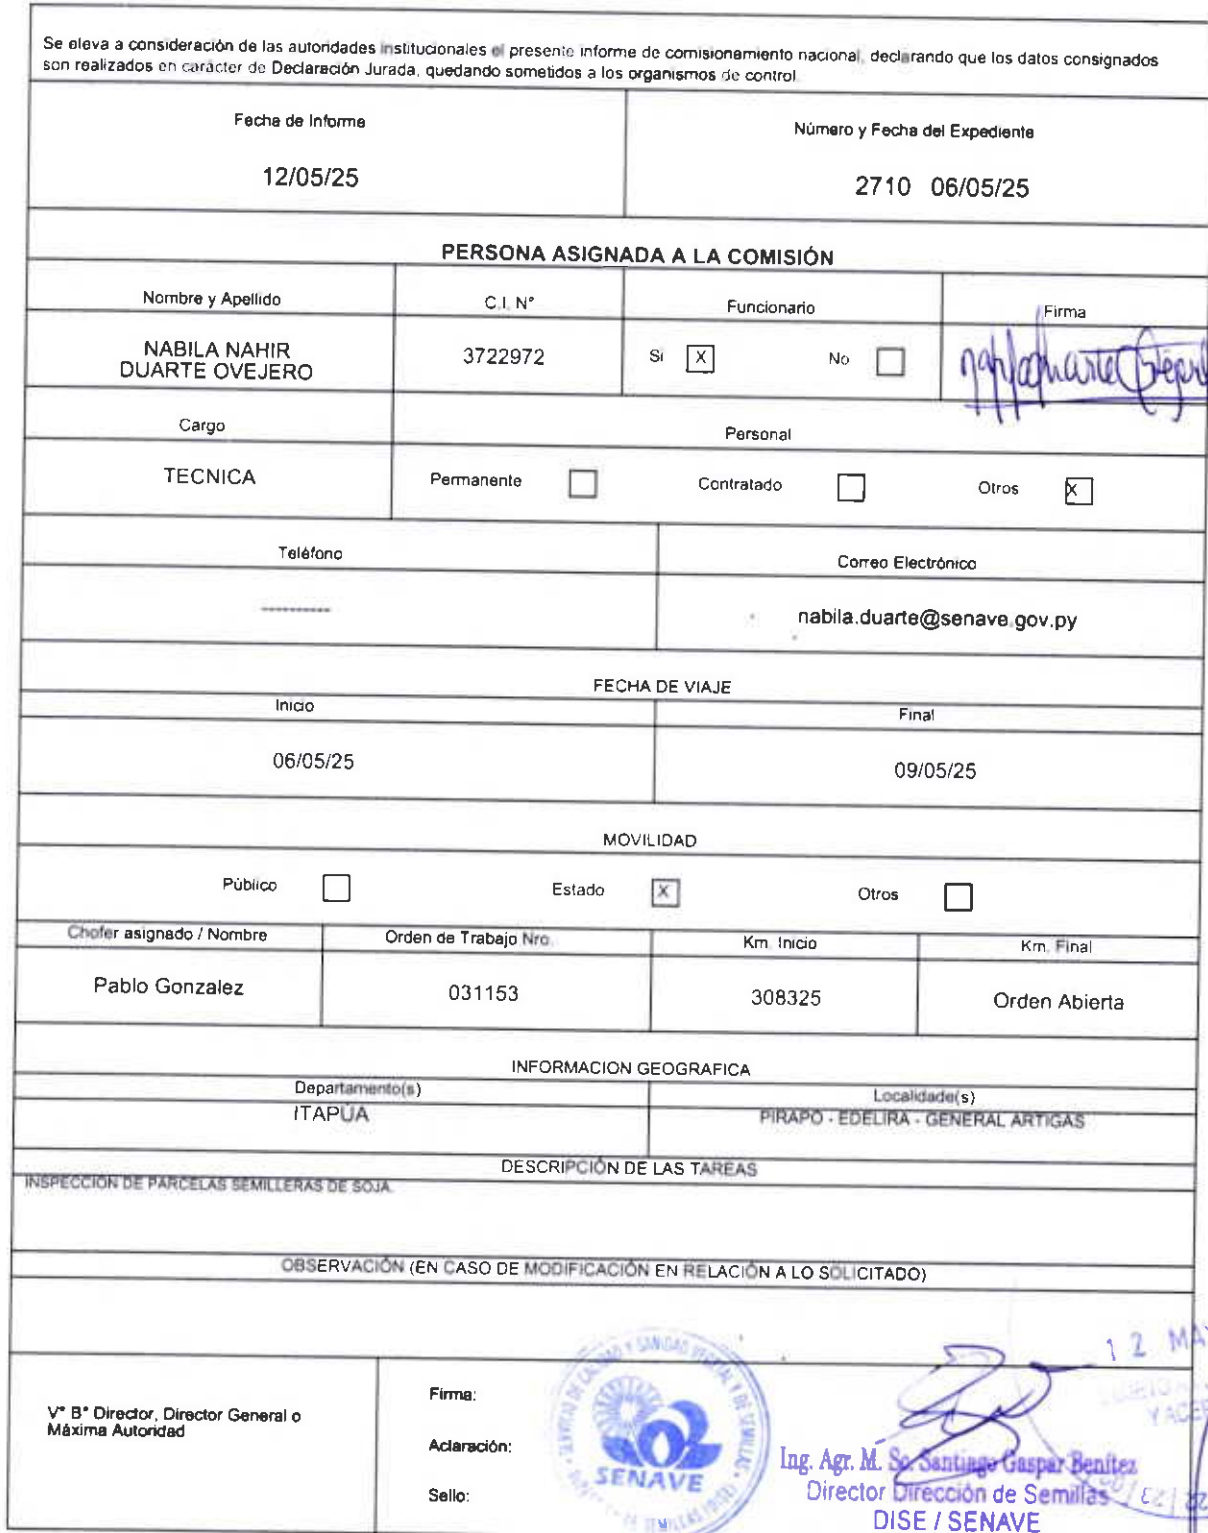 Se eleva a consideración de las autoridades institucionales el presente informe de comisionamiento nacional, declarando que los datos consignados
son realizados en carácter de Declaración Jurada, quedando sometidos a los organismos de control.
Fecha de Informe
Número y Fecha del Expediente
12/05/25
2710 06/05/25
PERSONA ASIGNADA A LA COMISIÓN
Nombre y Apellido
C.I. N°
Funcionario
Firma
NABILA NAHIR
DUARTE OVEJERO
3722972
Si X
No
Cargo
Personal
TECNICA
Permanente
Contratado
Otros X
Teléfono
Correo Electrónico
----------
nabila.duarte@senave.gov.py
FECHA DE VIAJE
Inicio
Final
06/05/25
09/05/25
MOVILIDAD
Público
Estado X
Otros
Chofer asignado / Nombre
Orden de Trabajo Nro.
Km. Inicio
Km. Final
Pablo Gonzalez
031153
308325
Orden Abierta
INFORMACION GEOGRAFICA
Departamento(s)
Localidade(s)
ITAPÚA
PIRAPO - EDELIRA - GENERAL ARTIGAS
DESCRIPCIÓN DE LAS TAREAS
INSPECCIÓN DE PARCELAS SEMILLERAS DE SOJA.
OBSERVACIÓN (EN CASO DE MODIFICACIÓN EN RELACIÓN A LO SOLICITADO)
12 MA
V° B° Director, Director General o
Máxima Autoridad
Firma:
Aclaración:
Sello:
SENAVE
Ing. Agr. M. Sc. Santiago Gaspar Benítez
Director Dirección de Semillas
DISE / SENAVE